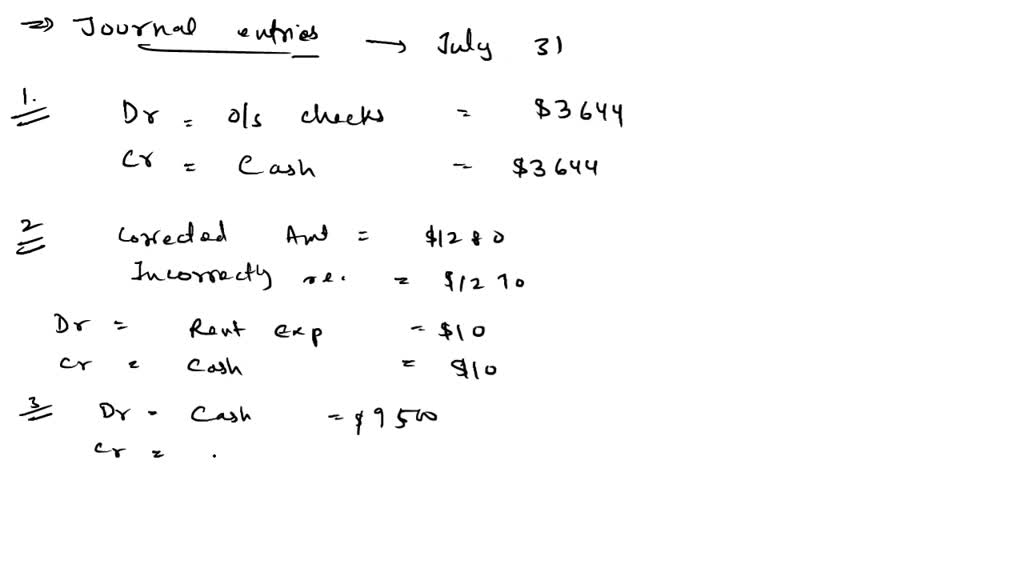 => Journal entries → July 31
1. Dr = o/s checks = $3644
Cr = Cash = $3644
2 Corrected Amt = $1280
Incorrectly re. = $1270
Dr = Rent exp = $10
Cr = Cash = $10
3 Dr = Cash = $9500
Cr = .